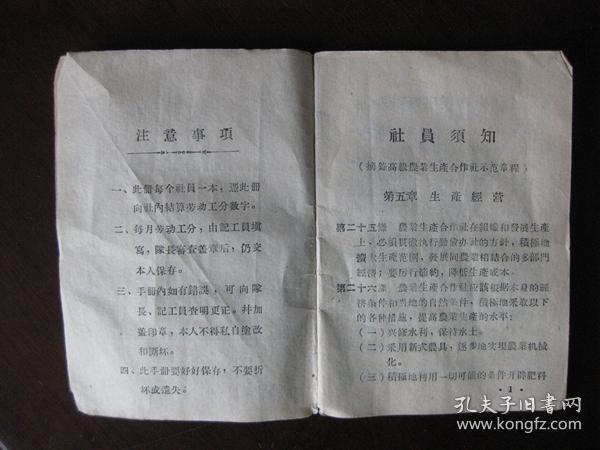 注意事項
一、此册每个社員一本，憑此册
向社內結算劳动工分数字。
二、每月劳动工分，由記工員塡
寫，隊長審查盖章后，仍交
本人保存。
三、手册內如有錯誤，可向隊
長、記工員查明更正。幷加
盖印章，本人不得私自塗改
和撕坏。
四、此手册要好好保存，不要折
坏或遺失。
社員須知
（摘錄高級農業生產合作社示范章程）
第五章 生產經营
第二十五條 農業生產合作社在組織和發展生產
上，必須貫徹执行勤儉办社的方針，積極地
擴大生產范圍，發展同農業相結合的多部門
經濟；要厉行節約，降低生產成本。
第二十六條 農業生產合作社应該根据本身的經
濟条件和当地的自然条件，積極地采取以下
的各种措施，提高農業生產的水平：
（一）兴修水利，保持水土。
（二）采用新式農具，逐步地实現農業机械
化。
（三）積極地利用一切可能的条件开辟肥料
·1·
孔夫子旧書网